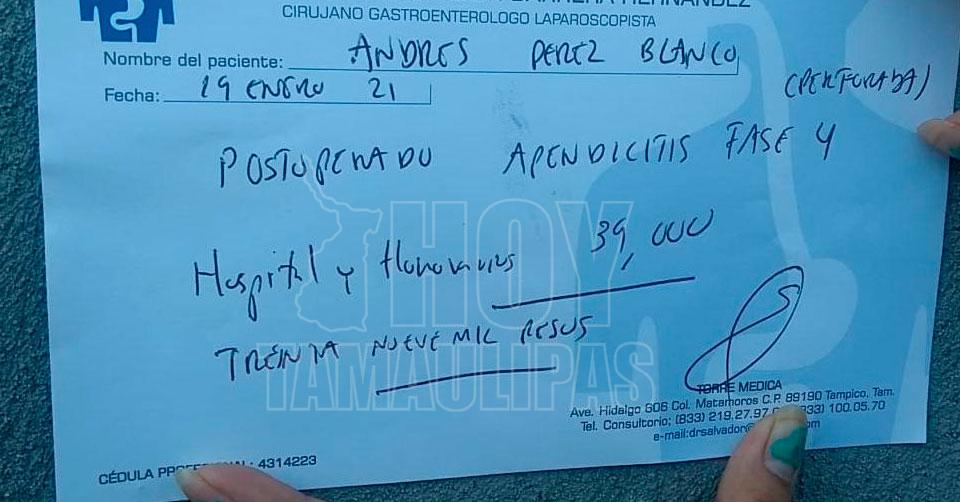 HERNANDEZ
CIRUJANO GASTROENTEROLOGO LAPAROSCOPISTA
Nombre del paciente: ANDRES PEREZ BLANCO
Fecha: 19 ENERO 21
(PERFORADA)
POSTOPERADO APENDICITIS FASE 4
Hospital y Honorarios 39,000
TREINTA NUEVE MIL PESOS
HOY
TAMAULIPAS
TORRE MEDICA
Ave. Hidalgo 606 Col. Matamoros C.P. 89190 Tampico, Tam.
Tel. Consultorio: (833) 219.27.97 (833) 100.05.70
e-mail:drsalvador@
CÉDULA 4314223